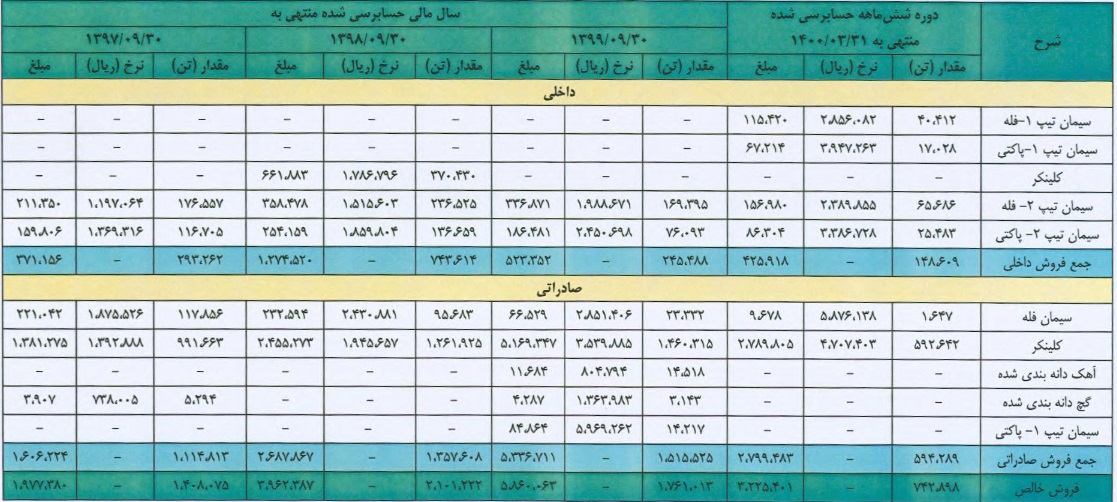 شرح | دوره شش‌ماهه حسابرسی شده منتهی به ۱۴۰۰/۰۳/۳۱ | سال مالی حسابرسی شده منتهی به
۱۳۹۹/۰۹/۳۰ | ۱۳۹۸/۰۹/۳۰ | ۱۳۹۷/۰۹/۳۰
مقدار (تن) | نرخ (ریال) | مبلغ | مقدار (تن) | نرخ (ریال) | مبلغ | مقدار (تن) | نرخ (ریال) | مبلغ | مقدار (تن) | نرخ (ریال) | مبلغ
داخلی
سیمان تیپ ۱-فله | ۴۰،۴۱۲ | ۲،۸۵۶،۰۸۲ | ۱۱۵،۴۲۰ | – | – | – | – | – | – | – | – | –
سیمان تیپ ۱-پاکتی | ۱۷،۰۲۸ | ۳،۹۴۷،۲۶۳ | ۶۷،۲۱۴ | – | – | – | – | – | – | – | – | –
کلینکر | – | – | – | – | – | – | ۳۷۰،۴۳۰ | ۱،۷۸۶،۷۹۶ | ۶۶۱،۸۸۳ | – | – | –
سیمان تیپ ۲- فله | ۶۵،۶۸۶ | ۲،۳۸۹،۸۵۵ | ۱۵۶،۹۸۰ | ۱۶۹،۳۹۵ | ۱،۹۸۸،۶۷۱ | ۳۳۶،۸۷۱ | ۲۳۶،۵۲۵ | ۱،۵۱۵،۶۰۳ | ۳۵۸،۴۷۸ | ۱۷۶،۵۵۷ | ۱،۱۹۷،۰۶۴ | ۲۱۱،۳۵۰
سیمان تیپ ۲- پاکتی | ۲۵،۴۸۳ | ۳،۳۸۶،۷۲۸ | ۸۶،۳۰۴ | ۷۶،۰۹۳ | ۲،۴۵۰،۶۹۸ | ۱۸۶،۴۸۱ | ۱۳۶،۶۵۹ | ۱،۸۵۹،۸۰۴ | ۲۵۴،۱۵۹ | ۱۱۶،۷۰۵ | ۱،۳۶۹،۳۱۶ | ۱۵۹،۸۰۶
جمع فروش داخلی | ۱۴۸،۶۰۹ | – | ۴۲۵،۹۱۸ | ۲۴۵،۴۸۸ | – | ۵۲۳،۳۵۲ | ۷۴۳،۶۱۴ | – | ۱،۲۷۴،۵۲۰ | ۲۹۳،۲۶۲ | – | ۳۷۱،۱۵۶
صادراتی
سیمان فله | ۱،۶۴۷ | ۵،۸۷۶،۱۳۸ | ۹،۶۷۸ | ۲۳،۳۳۲ | ۲،۸۵۱،۴۰۶ | ۶۶،۵۲۹ | ۹۵،۶۸۳ | ۲،۴۳۰،۸۸۱ | ۲۳۲،۵۹۴ | ۱۱۷،۸۵۶ | ۱،۸۷۵،۵۲۶ | ۲۲۱،۰۴۲
کلینکر | ۵۹۲،۶۴۲ | ۴،۷۰۷،۴۰۳ | ۲،۷۸۹،۸۰۵ | ۱،۴۶۰،۳۱۵ | ۳،۵۳۹،۸۸۵ | ۵،۱۶۹،۳۴۷ | ۱،۲۶۱،۹۲۵ | ۱،۹۴۵،۶۵۷ | ۲،۴۵۵،۲۷۳ | ۹۹۱،۶۶۳ | ۱،۳۹۲،۸۸۸ | ۱،۳۸۱،۲۷۵
آهک دانه بندی شده | – | – | – | ۱۴،۵۱۸ | ۸۰۴،۷۹۴ | ۱۱،۶۸۴ | – | – | – | – | – | –
گچ دانه بندی شده | – | – | – | ۳،۱۴۳ | ۱،۳۶۳،۹۸۳ | ۴،۲۸۷ | – | – | – | ۵،۲۹۴ | ۷۳۸،۰۰۵ | ۳،۹۰۷
سیمان تیپ ۱- پاکتی | – | – | – | ۱۴،۲۱۷ | ۵،۹۶۹،۲۶۲ | ۸۴،۸۶۴ | – | – | – | – | – | –
جمع فروش صادراتی | ۵۹۴،۲۸۹ | – | ۲،۷۹۹،۴۸۳ | ۱،۵۱۵،۵۲۵ | – | ۵،۳۳۶،۷۱۱ | ۱،۳۵۷،۶۰۸ | – | ۲،۶۸۷،۸۶۷ | ۱،۱۱۴،۸۱۳ | – | ۱،۶۰۶،۲۲۴
فروش خالص | ۷۴۲،۸۹۸ | – | ۳،۲۲۵،۴۰۱ | ۱،۷۶۱،۰۱۳ | – | ۵،۸۶۰،۰۶۳ | ۲،۱۰۱،۲۲۲ | – | ۳،۹۶۲،۳۸۷ | ۱،۴۰۸،۰۷۵ | – | ۱،۹۷۷،۳۸۰